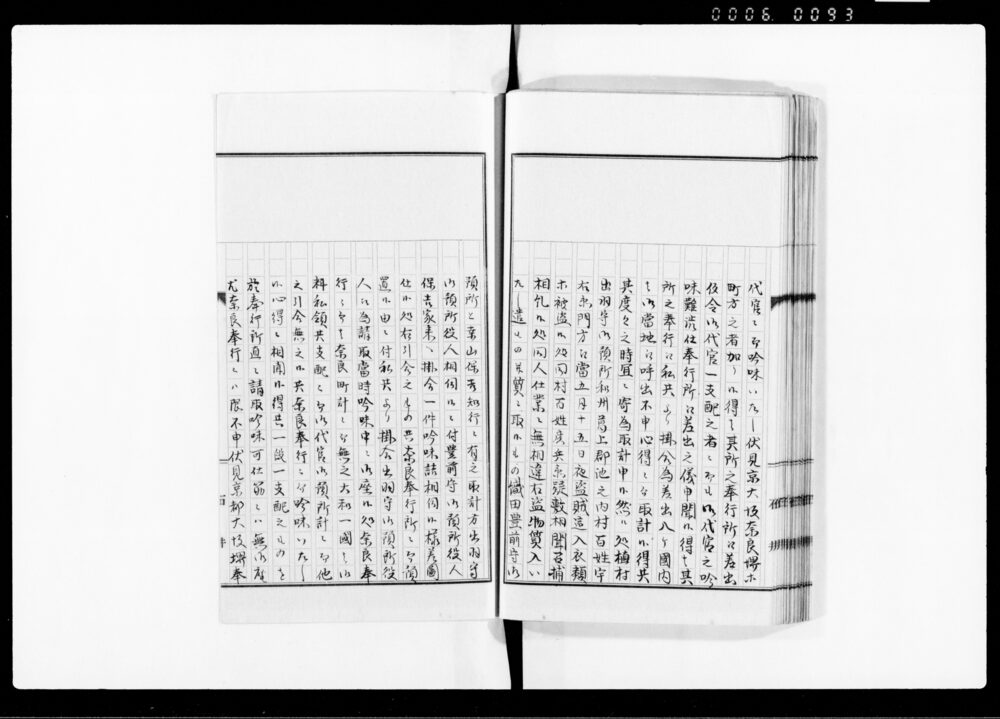 0006.0093
代官ニ而吟味いたし伏見京大坂奈良堺ホ
町方之者加ハり候得ハ其所之奉行所江差出
仮令御代官一支配之者ニ而も御代官之吟
味難渋仕奉行所江差出之儀申聞候得ハ其
所之奉行江私共より掛合為差出八ヶ國内
ハ御當地江呼出不申心得ニ而取計候得共
其度々之時宜ニ寄為取計申候然ル処植村
出羽守御預所和州葛上郡池之内村百姓宇
右衛門方江當五月十五日夜盗賊這入衣類
ホ被盗候処同村百姓
相糺候処同人仕業ニ無相違右盗物質入い
たし遣し
預所と葉山保吉知行ニ有之取計方出羽守
御預所役人相伺候ニ付豊前守御預所役人
保吉家来ニ掛合一件吟味詰相伺候様差図
仕候処右引合之もの共奈良奉行所ニ而預
置候由ニ付私共より掛合出羽守御預所役
人江為請取當時吟味中ニ御座候処奈良奉
行ニ而ハ奈良町計ニ而無之大和一國ハ御
料私領共支配ニ而御代官御預所計ニ而他
之引合無之候共奈良奉行ニ而吟味いたし
候心得ニ相聞候得共一領一支配之ものを
於奉行所直ニ請取吟味可仕筋ニハ無御座
尤奈良奉行ニハ限不申伏見京都大坂堺奉